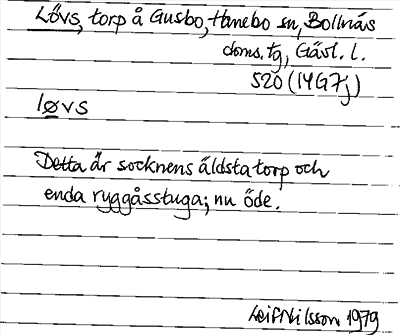 Lövs, torp å Gusbo, Hanebo sn, Bollnäs
doms. tg, Gävl. l.
S20 (14G7j)
løvs
Detta är socknens äldsta torp och
enda ryggåsstuga; nu öde.
Leif Nilsson 1979